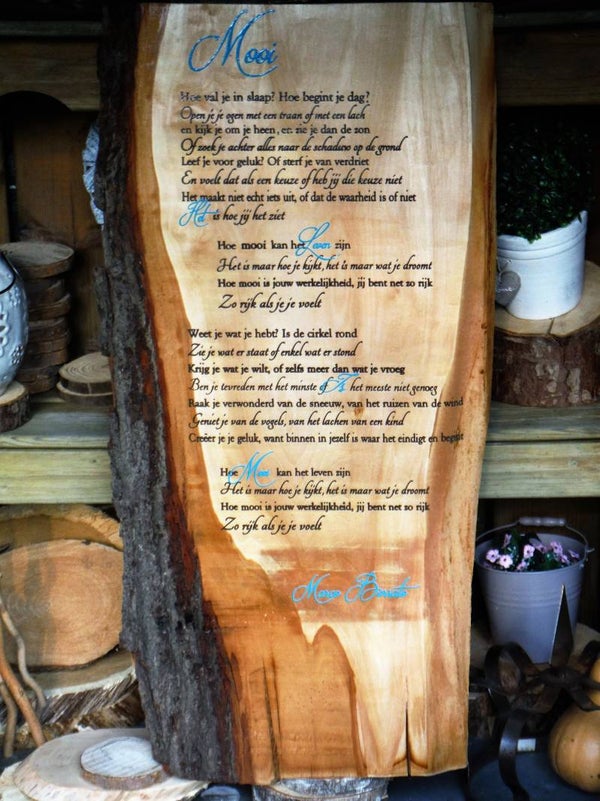 Mooi
Hoe val je in slaap? Hoe begint je dag?
Open je je ogen met een traan of met een lach
en kijk je om je heen, en zie je dan de zon
Of zoek je achter alles naar de schaduw op de grond
Leef je voor geluk? Of sterf je van verdriet
En voelt dat als een keuze of heb jij die keuze niet
Het maakt niet echt iets uit, of dat de waarheid is of niet
Het is hoe jij het ziet
Hoe mooi kan het Leven zijn
Het is maar hoe je kijkt, het is maar wat je droomt
Hoe mooi is jouw werkelijkheid, jij bent net zo rijk
Zo rijk als je je voelt
Weet je wat je hebt? Is de cirkel rond
Zie je wat er staat of enkel wat er stond
Krijg je wat je wilt, of zelfs meer dan wat je vroeg
Ben je tevreden met het minste of Is het meeste niet genoeg
Raak je verwonderd van de sneeuw, van het ruizen van de wind
Geniet je van de vogels, van het lachen van een kind
Creëer je je geluk, want binnen in jezelf is waar het eindigt en begint
Hoe Mooi kan het leven zijn
Het is maar hoe je kijkt, het is maar wat je droomt
Hoe mooi is jouw werkelijkheid, jij bent net zo rijk
Zo rijk als je je voelt
Marco Borsato